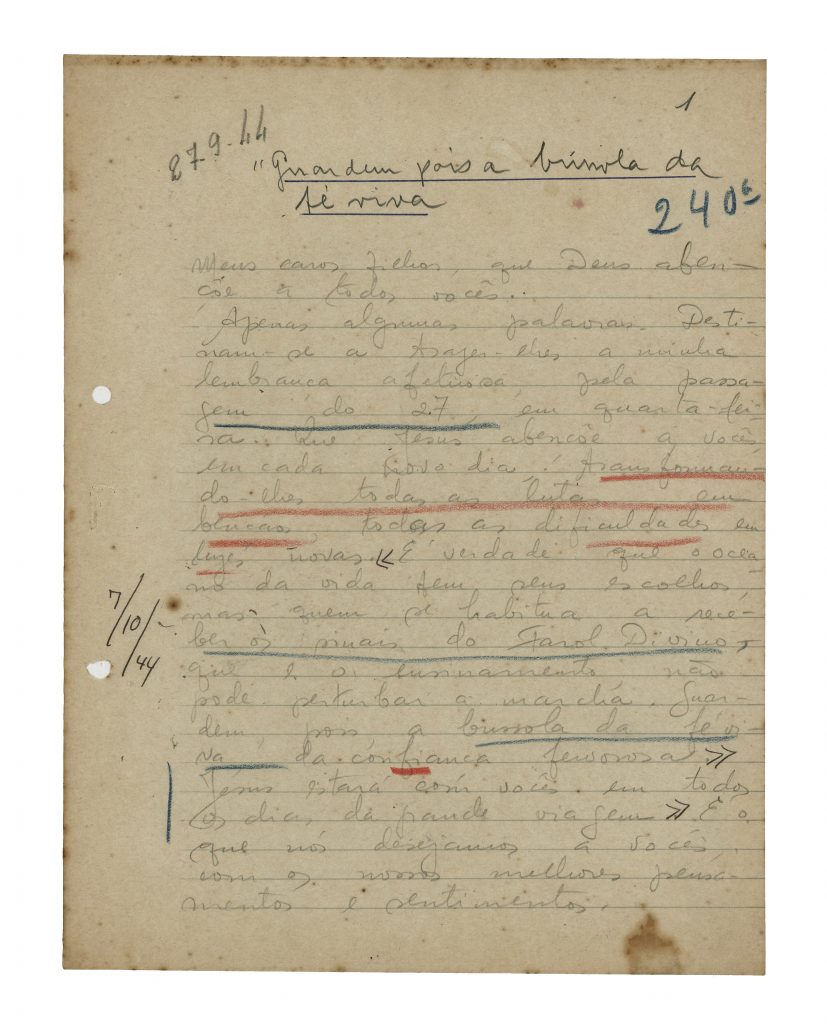 1
27-9-44
"Guardem pois a bússola da
fé viva
240ª
Meus caros filhos, que Deus aben-
çõe a todos vocês...
Apenas algumas palavras. Desti-
nam-se a trazer-lhes a minha
lembrança afetuosa, pela passa-
gem do 27, em quarta-fei-
ra. Que Jesus abençõe a vocês
em cada novo dia, transforman-
do-lhes todas as lutas em
bençãos, todas as dificuldades em
luzes novas. « É verdade que o ocea
no da vida tem seus escolhos,
mas quem se habitua a rece-
ber os sinais do Farol Divino,
que é o ensinamento não
pode perturbar a marcha. Guar-
dem, pois a bussola da fé vi-
va da confiança fervorosa »
Jesus estará com vocês em todos
os dias da grande viagem » É o
que nós desejamos a vocês,
com os nossos melhores pensa-
mentos e sentimentos.
7/10/-
/44